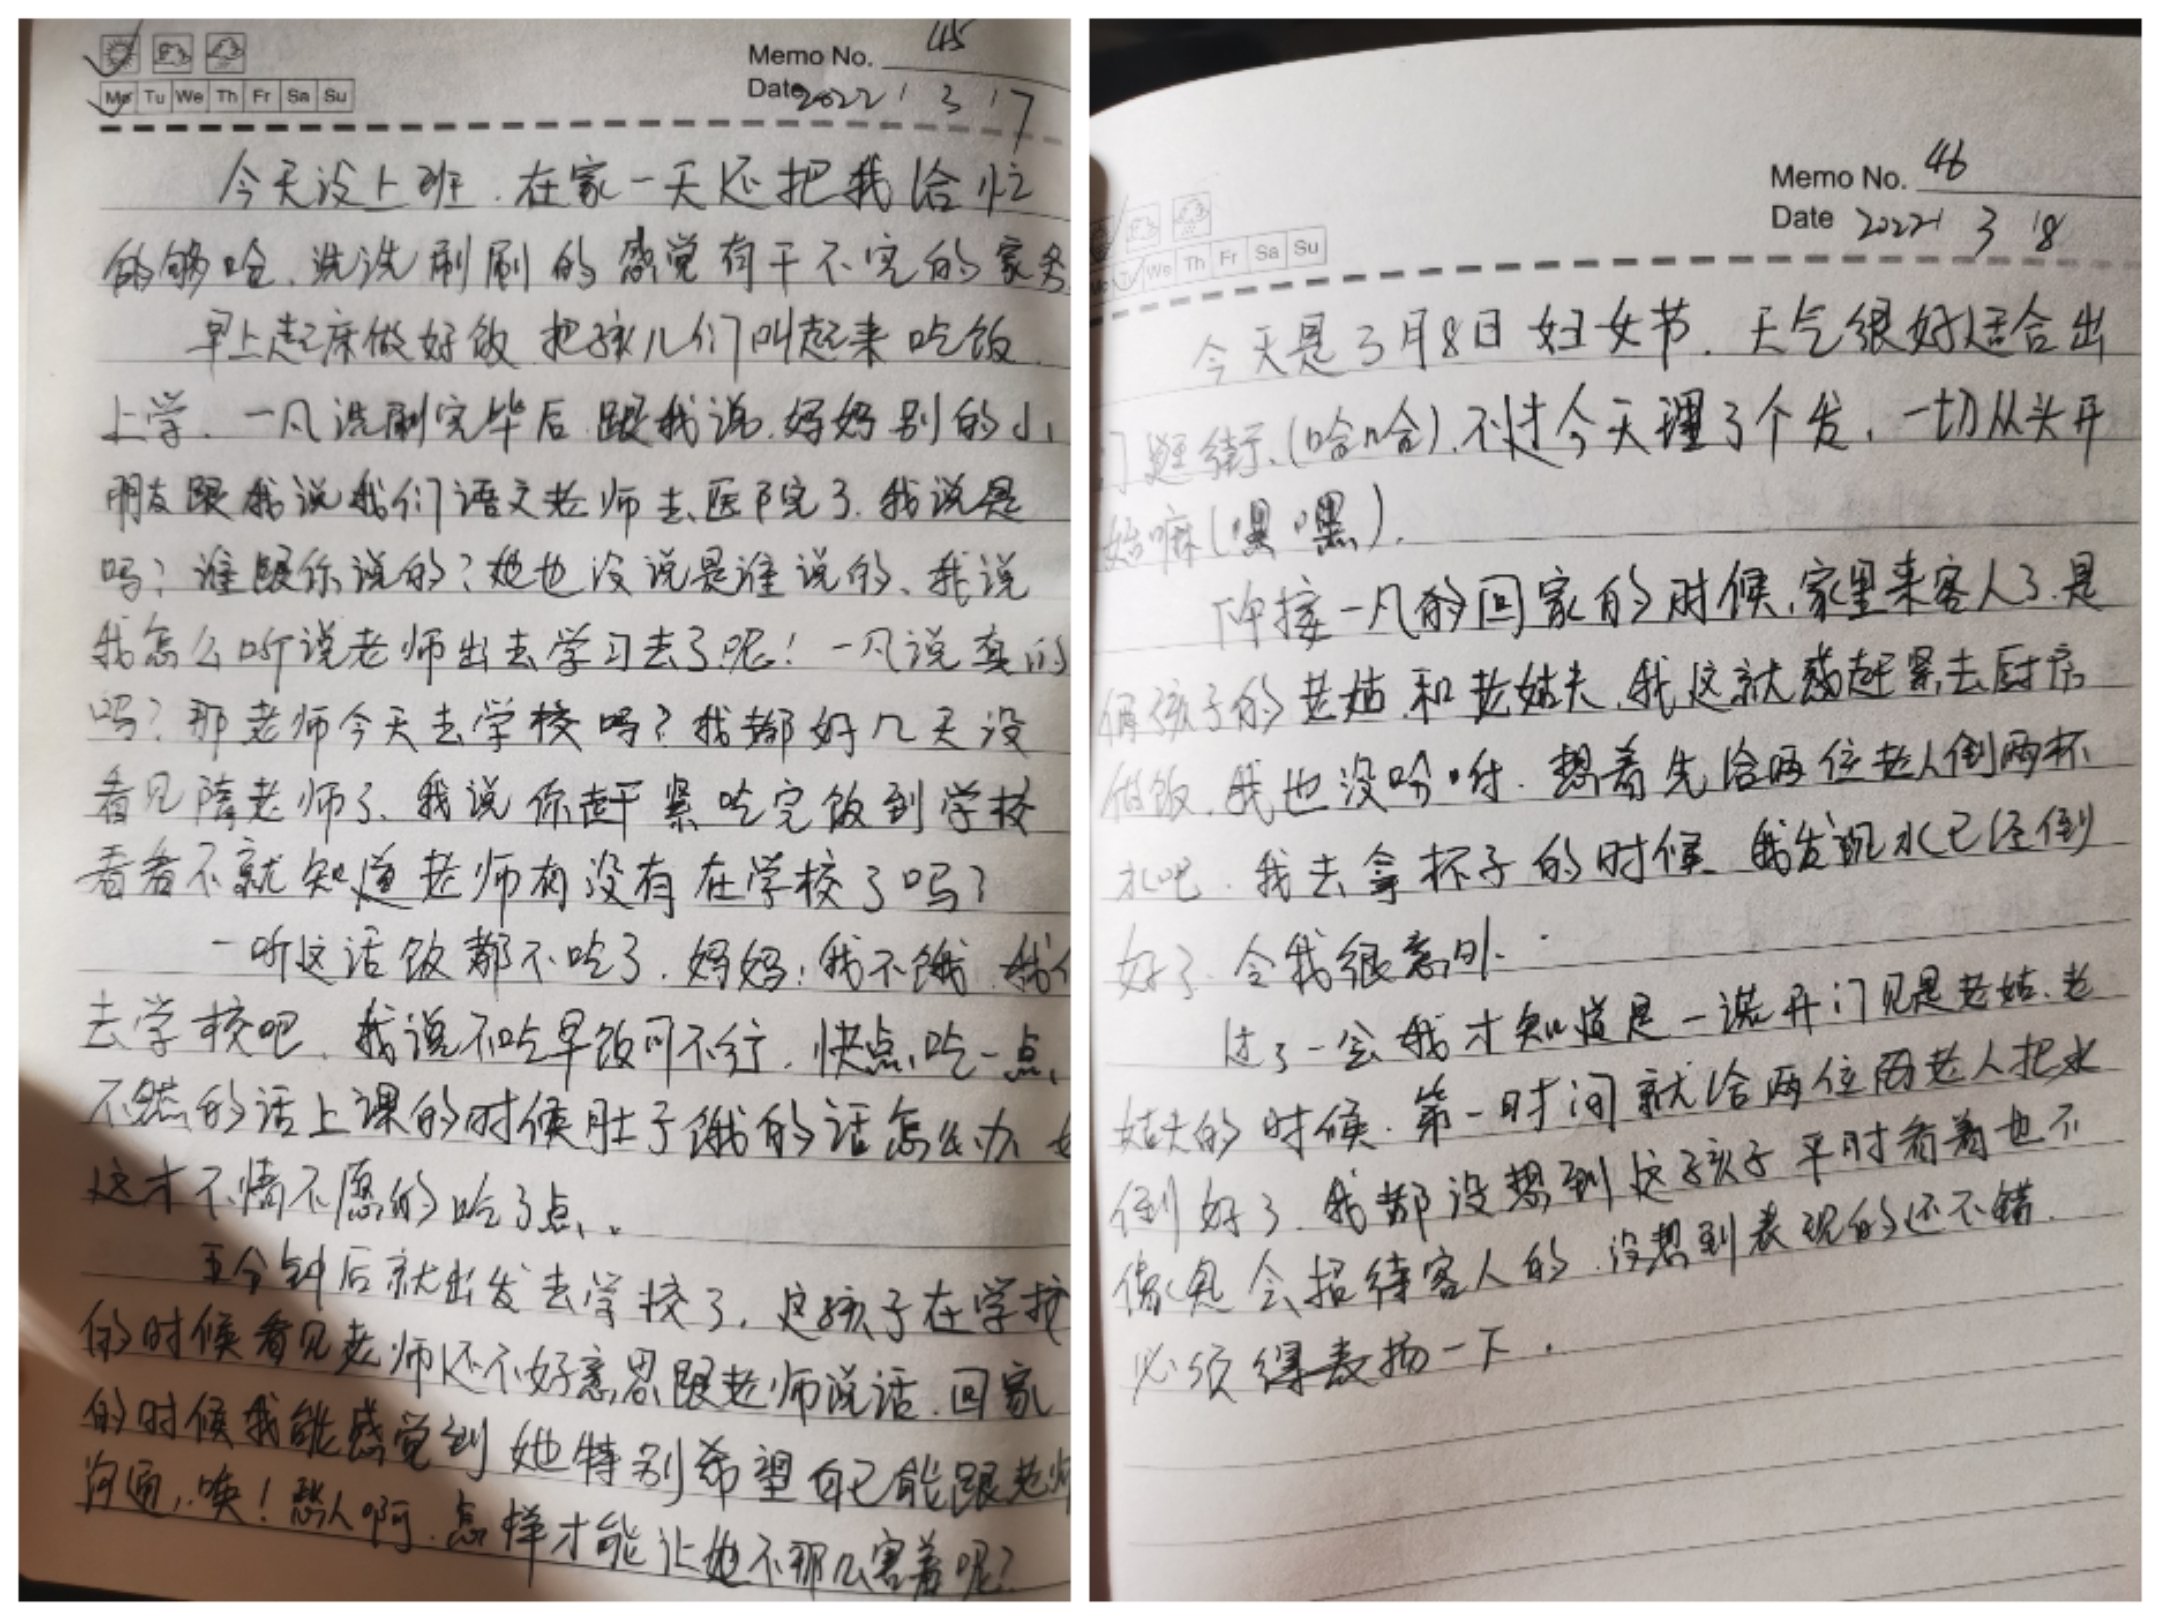 Memo No. 45
Mo Tu We Th Fr Sa Su
Date 2022 / 3 / 7
今天没上班.在家一天还把我给忙
的够呛、洗洗刷刷的感觉有干不完的家务
早上起床做好饭 把孩儿们叫起来吃饭.
上学.一凡洗刷完毕后.跟我说.妈妈别的小
朋友跟我说我们语文老师去医院了.我说是
吗?谁跟你说的?她也没说是谁说的、我说
我怎么听说老师出去学习去了呢!一凡说真的
吗?那老师今天去学校吗?我都好几天没
看见隋老师了、我说你赶紧吃完饭到学校
看看不就知道老师有没有在学校了吗?
一听这话饭都不吃了.妈妈:我不饿.我
去学校吧、我说不吃早饭可不行.快点吃一点、
不然的话上课的时候肚子饿的话怎么办
这才不情不愿的呛了点、。
五分钟后就出发去学校了.这孩子在学校
的时候看见老师还不好意思跟老师说话.回家
的时候我能感觉到她特别希望自己能跟老师
沟通、唉!愁人啊.怎样才能让她不那么害羞呢?
Memo No. 46
Date 2022 / 3 / 8
Tu We Th Fr Sa Su
今天是3月8日妇女节.天气很好适合出
门逛街、(哈哈).不过今天理了个发、一切从头开
始嘛(嘿嘿).
下午接一凡的回家的时候、家里来客人了.是
俩孩子的老姑和老姑夫.我这就感赶紧去厨房
做饭.我也没吩咐.想着先给两位老人倒两杯
水吧.我去拿杯子的时候 我发现水已经倒
好了.令我很意外.
过了一会我才知道是一诺开门见是老姑、老
姑夫的时候.第一时间就给两位两老人把水
倒好了.我都没想到这孩子平时看着也不
像是会招待客人的.没想到表现的还不错.
必须得表扬一下.